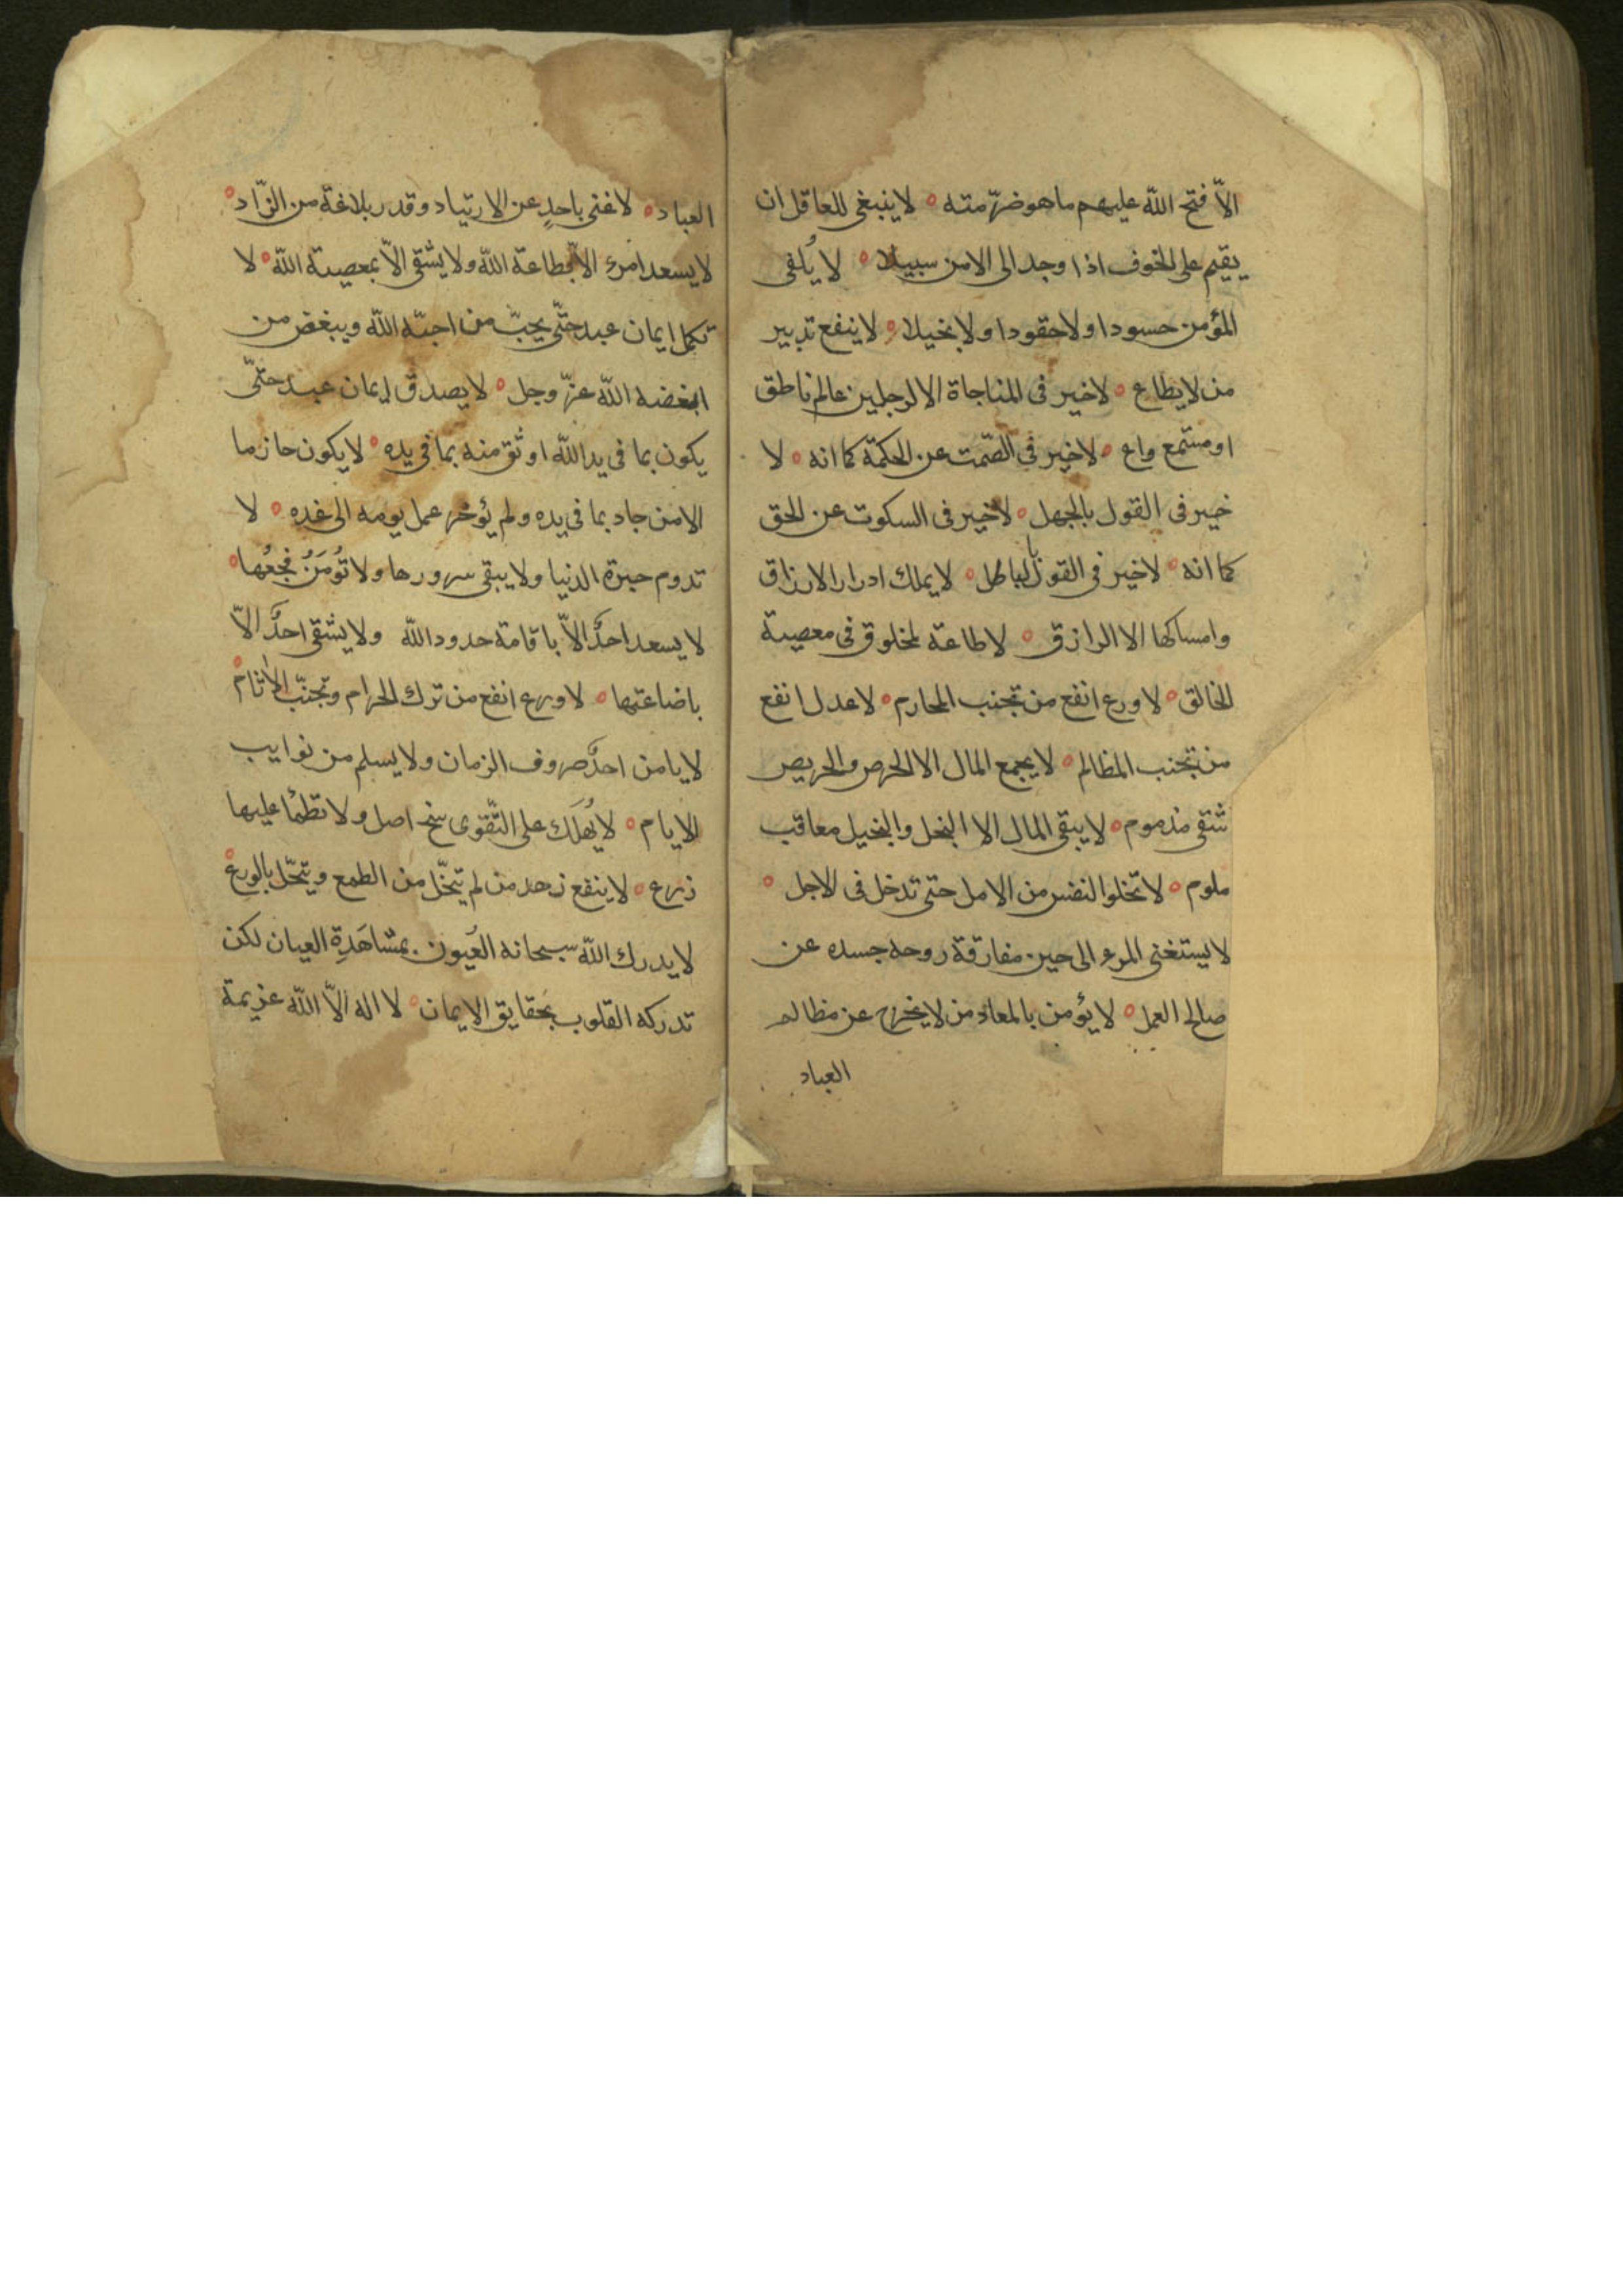 الّا فتح اللّه عليهم ما هو ضرّ منه ه لا ينبغى للعاقل ان
يقيم على الخوف اذا وجد الى الامن سبيلا ه لا يُلفى
المؤمن حسودا ولا حقودا ولا بخيلا ه لا ينفع تدبير
من لا يطاع ه لا خير فى المناجاة الا لرجلين عالم ناطق
او مستمع واع ه لا خير فى الصّمت عن الحكمة كما انه ه لا
خير فى القول بالجهل ه لا خير فى السكوت عن الحق
كما انه ه لا خير فى القول بالباطل ه لا يملك ادرار الارزاق
وامساكها الا الرازق ه لا طاعة لمخلوق فى معصية
الخالق ه لا ورع انفع من تجنب المحارم ه لا عدل انفع
من تجنب المظالم ه لا يجمع المال الا الحرص والحريص
شقى مذموم ه لا يبقى المال الا البخل والبخيل معاقب
ملوم ه لا تخلوا النفس من الامل حتى تدخل فى الاجل ه
لا يستغنى المرء الى حين مفارقة روحه جسده عن
صالح العمل ه لا يؤمن بالمعاد من لا يتحرج عن مظالم
العباد
العباد ه لا غنى باحدٍ عن الارتياد وقدر بلاغة من الزّاد ه
لا يسعد امرء الّا بطاعة اللّه ولا يشقى الّا بمعصية اللّه ه لا
تكمل ايمان عبد حتّى يحبّ من احبّه اللّه ويبغض من
ابغضه اللّه عزّ وجل ه لا يصدق ايمان عبد حتّى
يكون بما فى يد اللّه اوثق منه بما فى يده ه لا يكون حازما
الا من جاد بما فى يده ولم يؤخر عمل يومه الى غده ه لا
تدوم حبرة الدنيا ولا يبقى سرورها ولا تُومَنُ فجعُها ه
لا يسعد احدٌ الّا باقامة حدود اللّه ولا يشقى احدٌ الّا
باضاعتها ه لا ورع انفع من ترك الحرام وتجنّب الاثام ه
لا يامن احدٌ صروف الزمان ولا يسلم من نوايب
الايام ه لا يُهلَك على التّقوى سنخ اصل ولا تظمأ عليها
زرع ه لا ينفع زهد من لم يتخّل من الطمع ويتحّل بالورع ه
لا يدرك اللّه سبحانه العُيون بمشاهَدِة العيان لكن
تدركه القلوب بحقايق الايمان ه لا اله الّا اللّه عزيمة